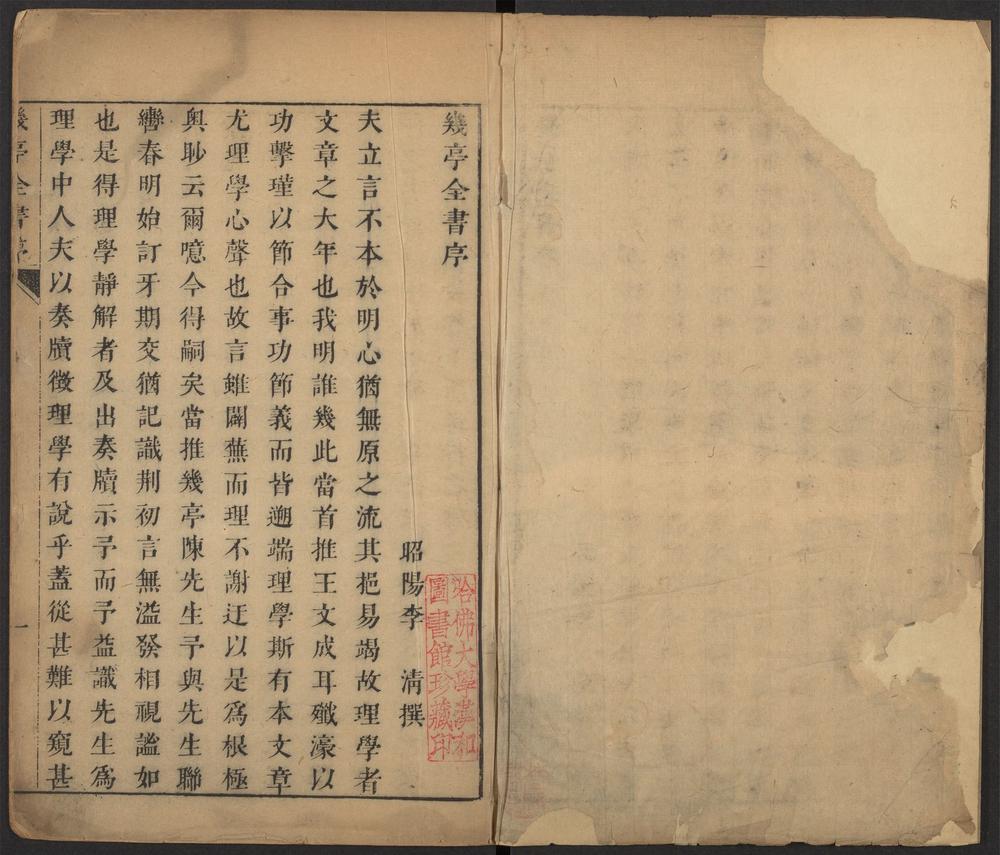 幾亭全書序
昭陽李　清撰
夫立言不本於明心猶無原之流其挹易竭故理學者
文章之大年也我明誰幾此當首推王文成耳殲濠以
功擊瑾以節合事功節義而皆遡端理學斯有本文章
尤理學心聲也故言雖闢蕪而理不謝迂以是爲根極
輿眇云爾噫今得嗣矣當推幾亭陳先生予與先生聯
轡春明始訂牙期交猶記識荆初言無溢發相視謐如
也是得理學靜解者及出奏牘示予而予益識先生爲
理學中人夫以奏牘徵理學有說乎蓋從甚難以窺甚
幾亭全書序
一
哈佛大學漢和
圖書館珍藏印